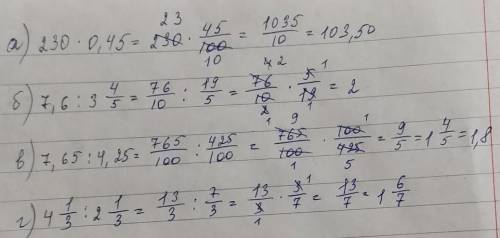 а) 230 · 0,45 = 230 23 · 45/100 10 = 1035/10 = 103,50
б) 7,6 : 3 4/5 = 76/10 : 19/5 = 76 4 2/10 2 1 · 5 1/19 1 = 2
в) 7,65 : 4,25 = 765/100 : 425/100 = 765 9/100 1 · 100 1/425 5 = 9/5 = 1 4/5 = 1,8
г) 4 1/3 : 2 1/3 = 13/3 : 7/3 = 13/3 1 · 3 1/7 = 13/7 = 1 6/7